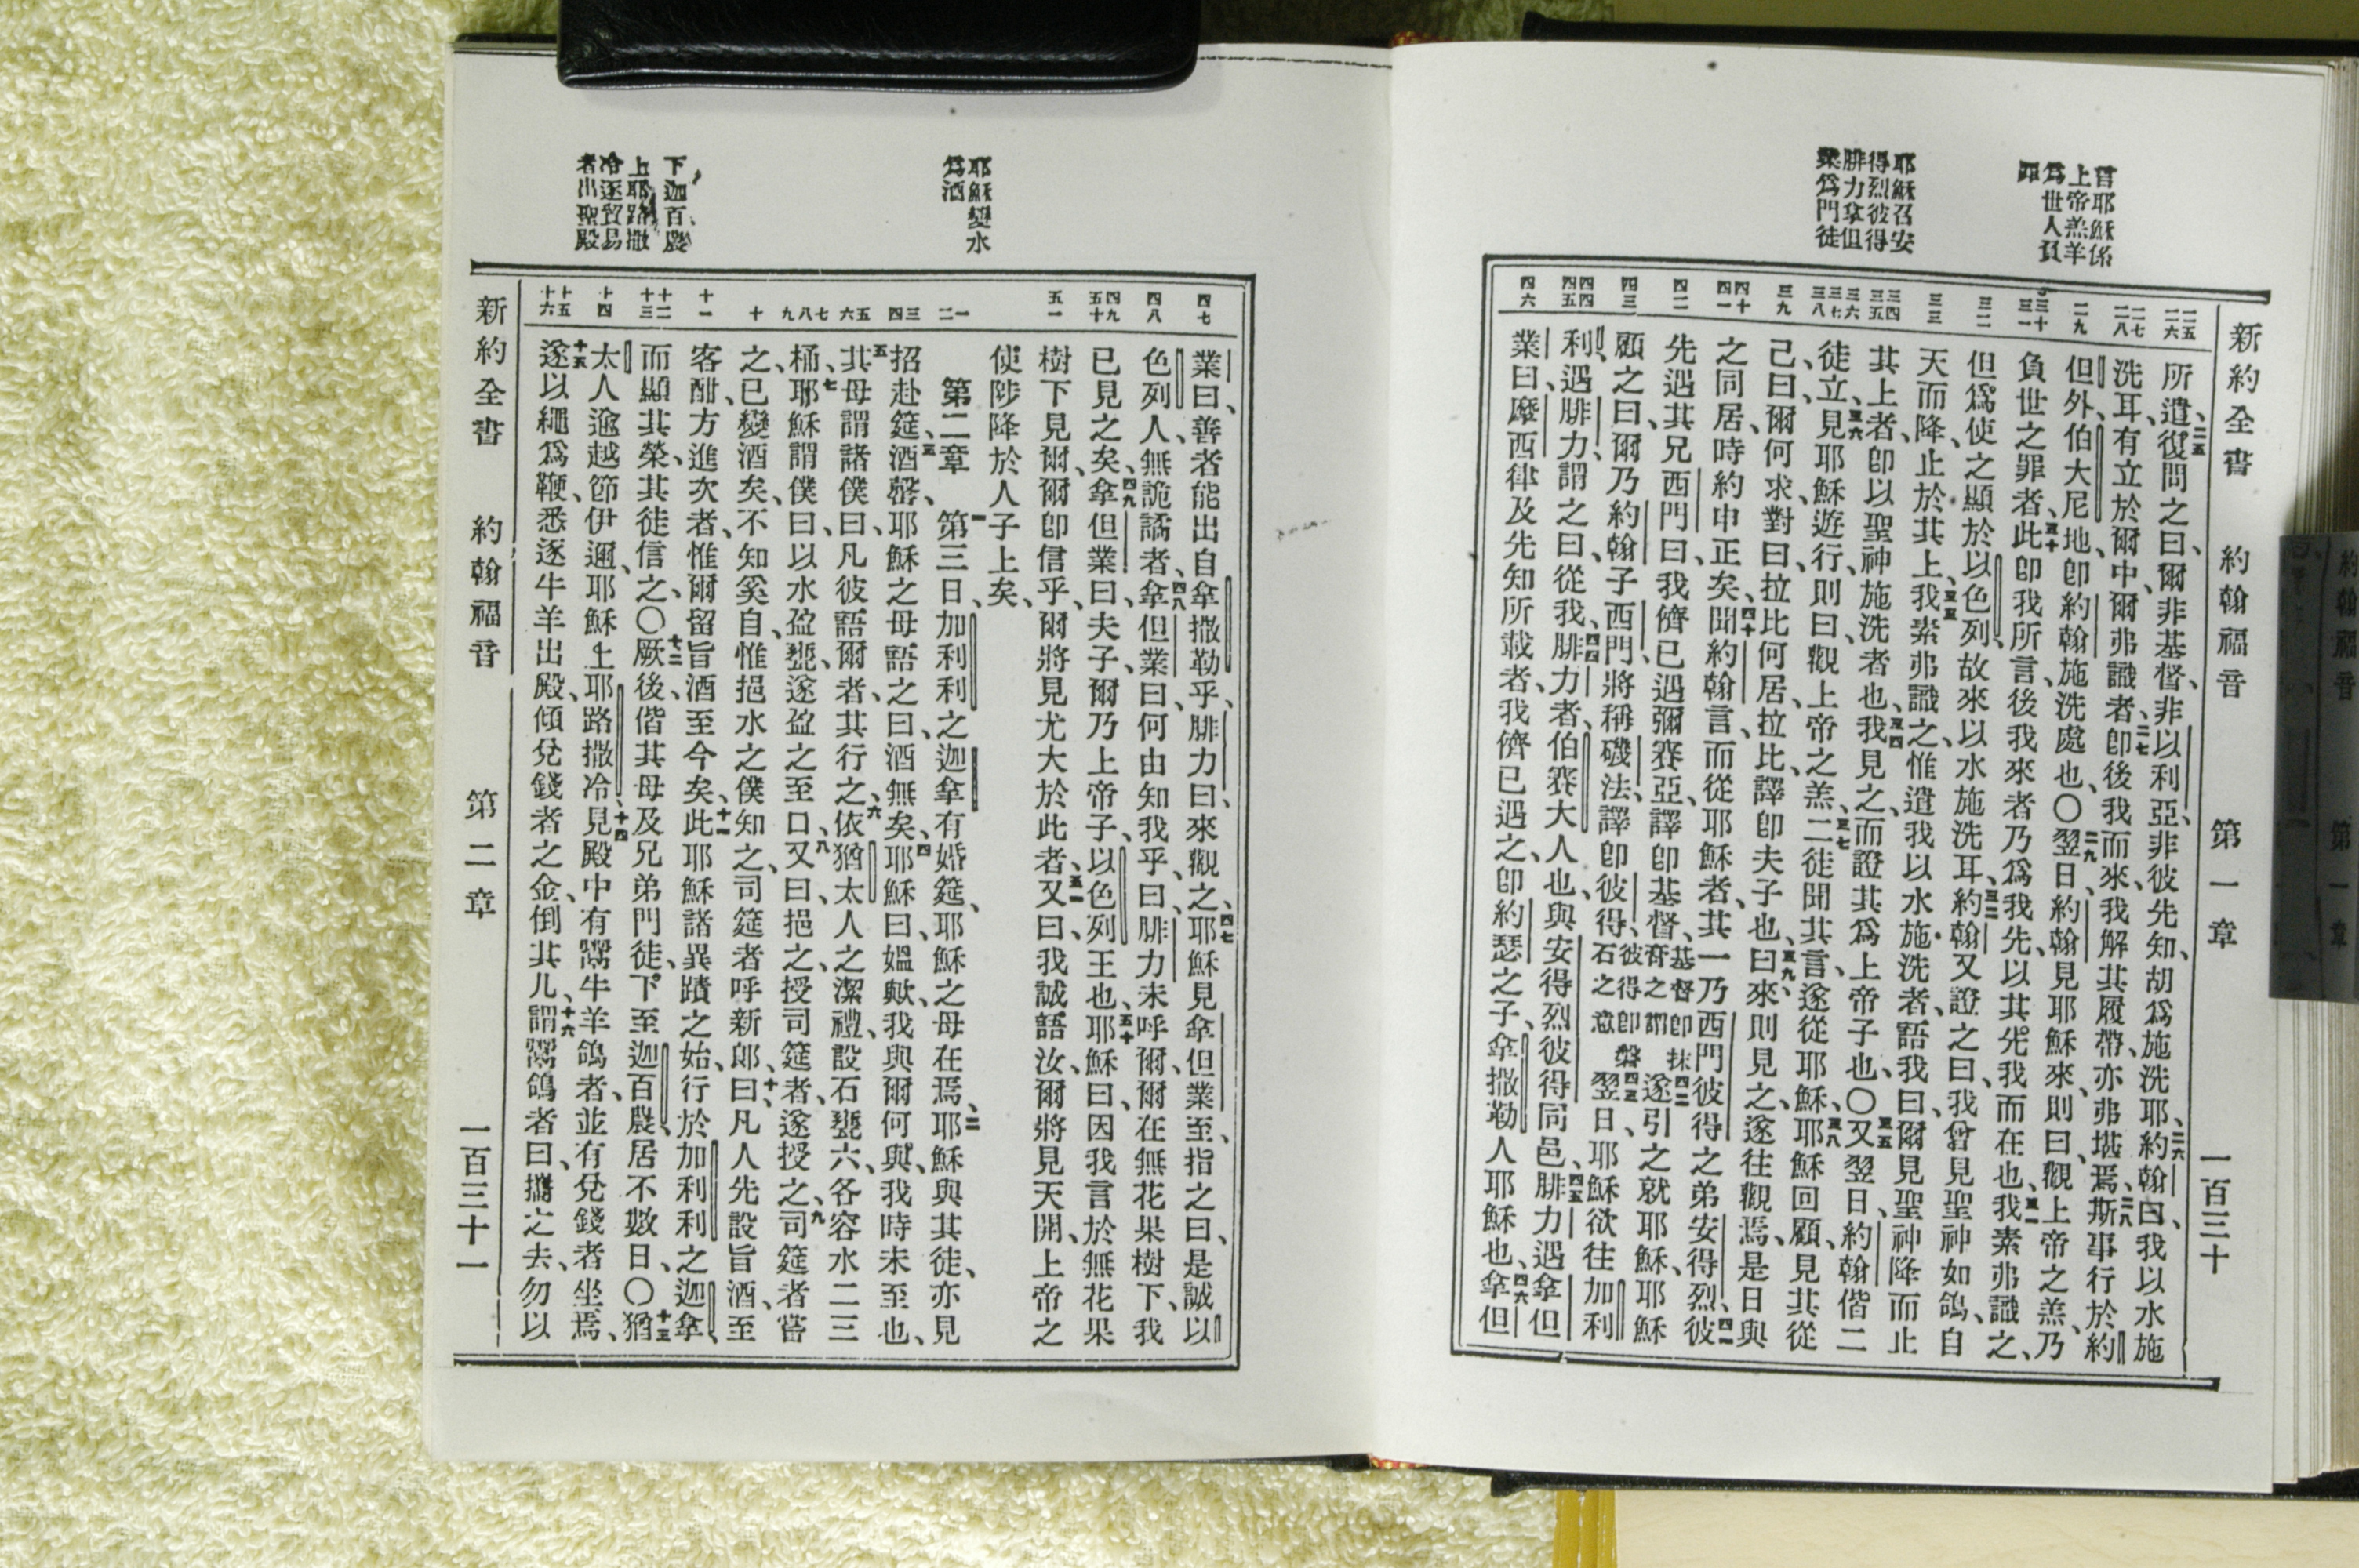 曾耶穌係
上帝羔羊
爲世人負
罪
耶穌召安
得烈彼得
腓力拿但
業爲門徒
新約全書 約翰福音 第一章 一百三十
二五 二六
二七 二八
二九
三十 三一
三二
三三
三四 三五
三六 三七 三八
三九
四十 四一
四二
四三
四四 四五
四六
所遣、二五復問之曰、爾非基督、非以利亞、非彼先知、胡爲施洗耶、二六約翰曰、我以水施
洗耳、有立於爾中、爾弗識者、二七卽後我而來、我解其履帶、亦弗堪焉、二八斯事行於約
但外、伯大尼地、卽約翰施洗處也、〇二九翌日、約翰見耶穌來、則曰、觀上帝之羔、乃
負世之罪者、三十此卽我所言、後我來者乃爲我先、以其先我而在也、三一我素弗識之、
但爲使之顯於以色列、故來以水施洗耳、三二約翰又證之曰、我曾見聖神如鴿、自
天而降、止於其上、三三我素弗識之、惟遣我以水施洗者語我曰、爾見聖神降而止
其上者、卽以聖神施洗者也、三四我見之、而證其爲上帝子也、〇三五又翌日、約翰偕二
徒立、三六見耶穌遊行、則曰、觀上帝之羔、三七二徒聞其言、遂從耶穌、三八耶穌回顧、見其從
己曰、爾何求、對曰、拉比何居、拉比、譯卽夫子也、三九曰、來則見之、遂往觀焉、是日與
之同居、時約申正矣、四十聞約翰言、而從耶穌者、其一乃西門彼得之弟安得烈、四一彼
先遇其兄西門曰、我儕已遇彌賽亞、譯卽基督、基督卽抹膏之謂四二遂引之就耶穌、耶穌
顧之曰、爾乃約翰子西門、將稱磯法、譯卽彼得、彼得卽磐石之意四三翌日、耶穌欲往加利
利、遇腓力、謂之曰、從我、四四腓力者、伯賽大人也、與安得烈彼得同邑、四五腓力遇拿但
業曰、摩西律及先知所載者、我儕已遇之、卽約瑟之子、拿撒勒人耶穌也、四六拿但
耶穌變水
爲酒
下迦百農
上耶路撒
冷逐貿易
者出聖殿
四七
四八
四九 五十
五一
一 二
三 四
五 六
七 八 九
十
十一
十二 十三
十四
十五 十六
業曰、善者能出自拿撒勒乎、腓力曰、來觀之、四七耶穌見拿但業至、指之曰、是誠以
色列人、無詭譎者、四八拿但業曰、何由知我乎、曰、腓力未呼爾、爾在無花果樹下、我
已見之矣、四九拿但業曰、夫子、爾乃上帝子、以色列王也、五十耶穌曰、因我言於無花果
樹下見爾、爾卽信乎、爾將見尤大於此者、五一又曰、我誠語汝、爾將見天開、上帝之
使陟降於人子上矣、
第二章 一第三日、加利利之迦拿有婚筵、耶穌之母在焉、二耶穌與其徒、亦見
招赴筵、三酒罄、耶穌之母語之曰、酒無矣、四耶穌曰、媼歟、我與爾何與、我時未至也、
五其母謂諸僕曰、凡彼語爾者、其行之、六依猶太人之潔禮、設石甕六、各容水二三
桶、七耶穌謂僕曰、以水盈甕、遂盈之至口、八又曰、挹之、授司筵者、遂授之、九司筵者嘗
之、已變酒矣、不知奚自、惟挹水之僕知之、司筵者呼新郎、十曰、凡人先設旨酒、至
客酣、方進次者、惟爾留旨酒至今矣、十一此耶穌諸異蹟之始、行於加利利之迦拿、
而顯其榮、其徒信之、〇十二厥後、偕其母及兄弟門徒、下至迦百農、居不數日、〇十三猶
太人逾越節伊邇、耶穌上耶路撒冷、十四見殿中有鬻牛羊鴿者、並有兌錢者坐焉、
十五遂以繩爲鞭、悉逐牛羊出殿、傾兌錢者之金、倒其几、十六謂鬻鴿者曰、攜之去、勿以
新約全書 約翰福音 第二章 一百三十一
約翰福音 第一章